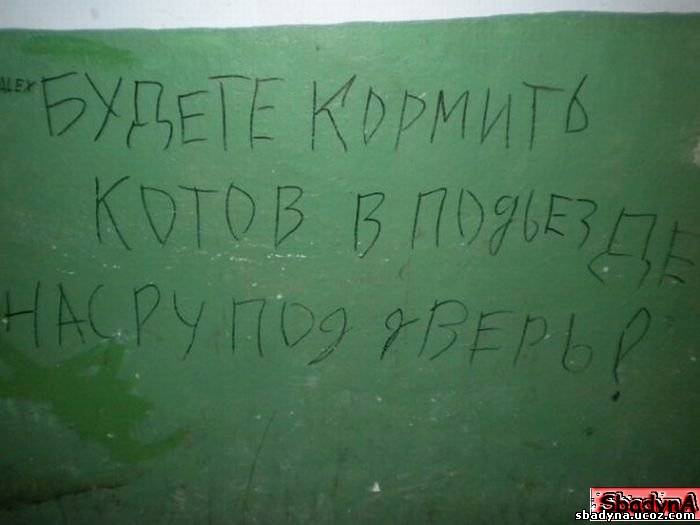 ALEX
БУДЕТЕ КОРМИТЬ
КОТОВ В ПОДЬЕЗДЕ
НАСРУ ПОД ДВЕРЬ!
SbadynA
sbadyna.ucoz.com